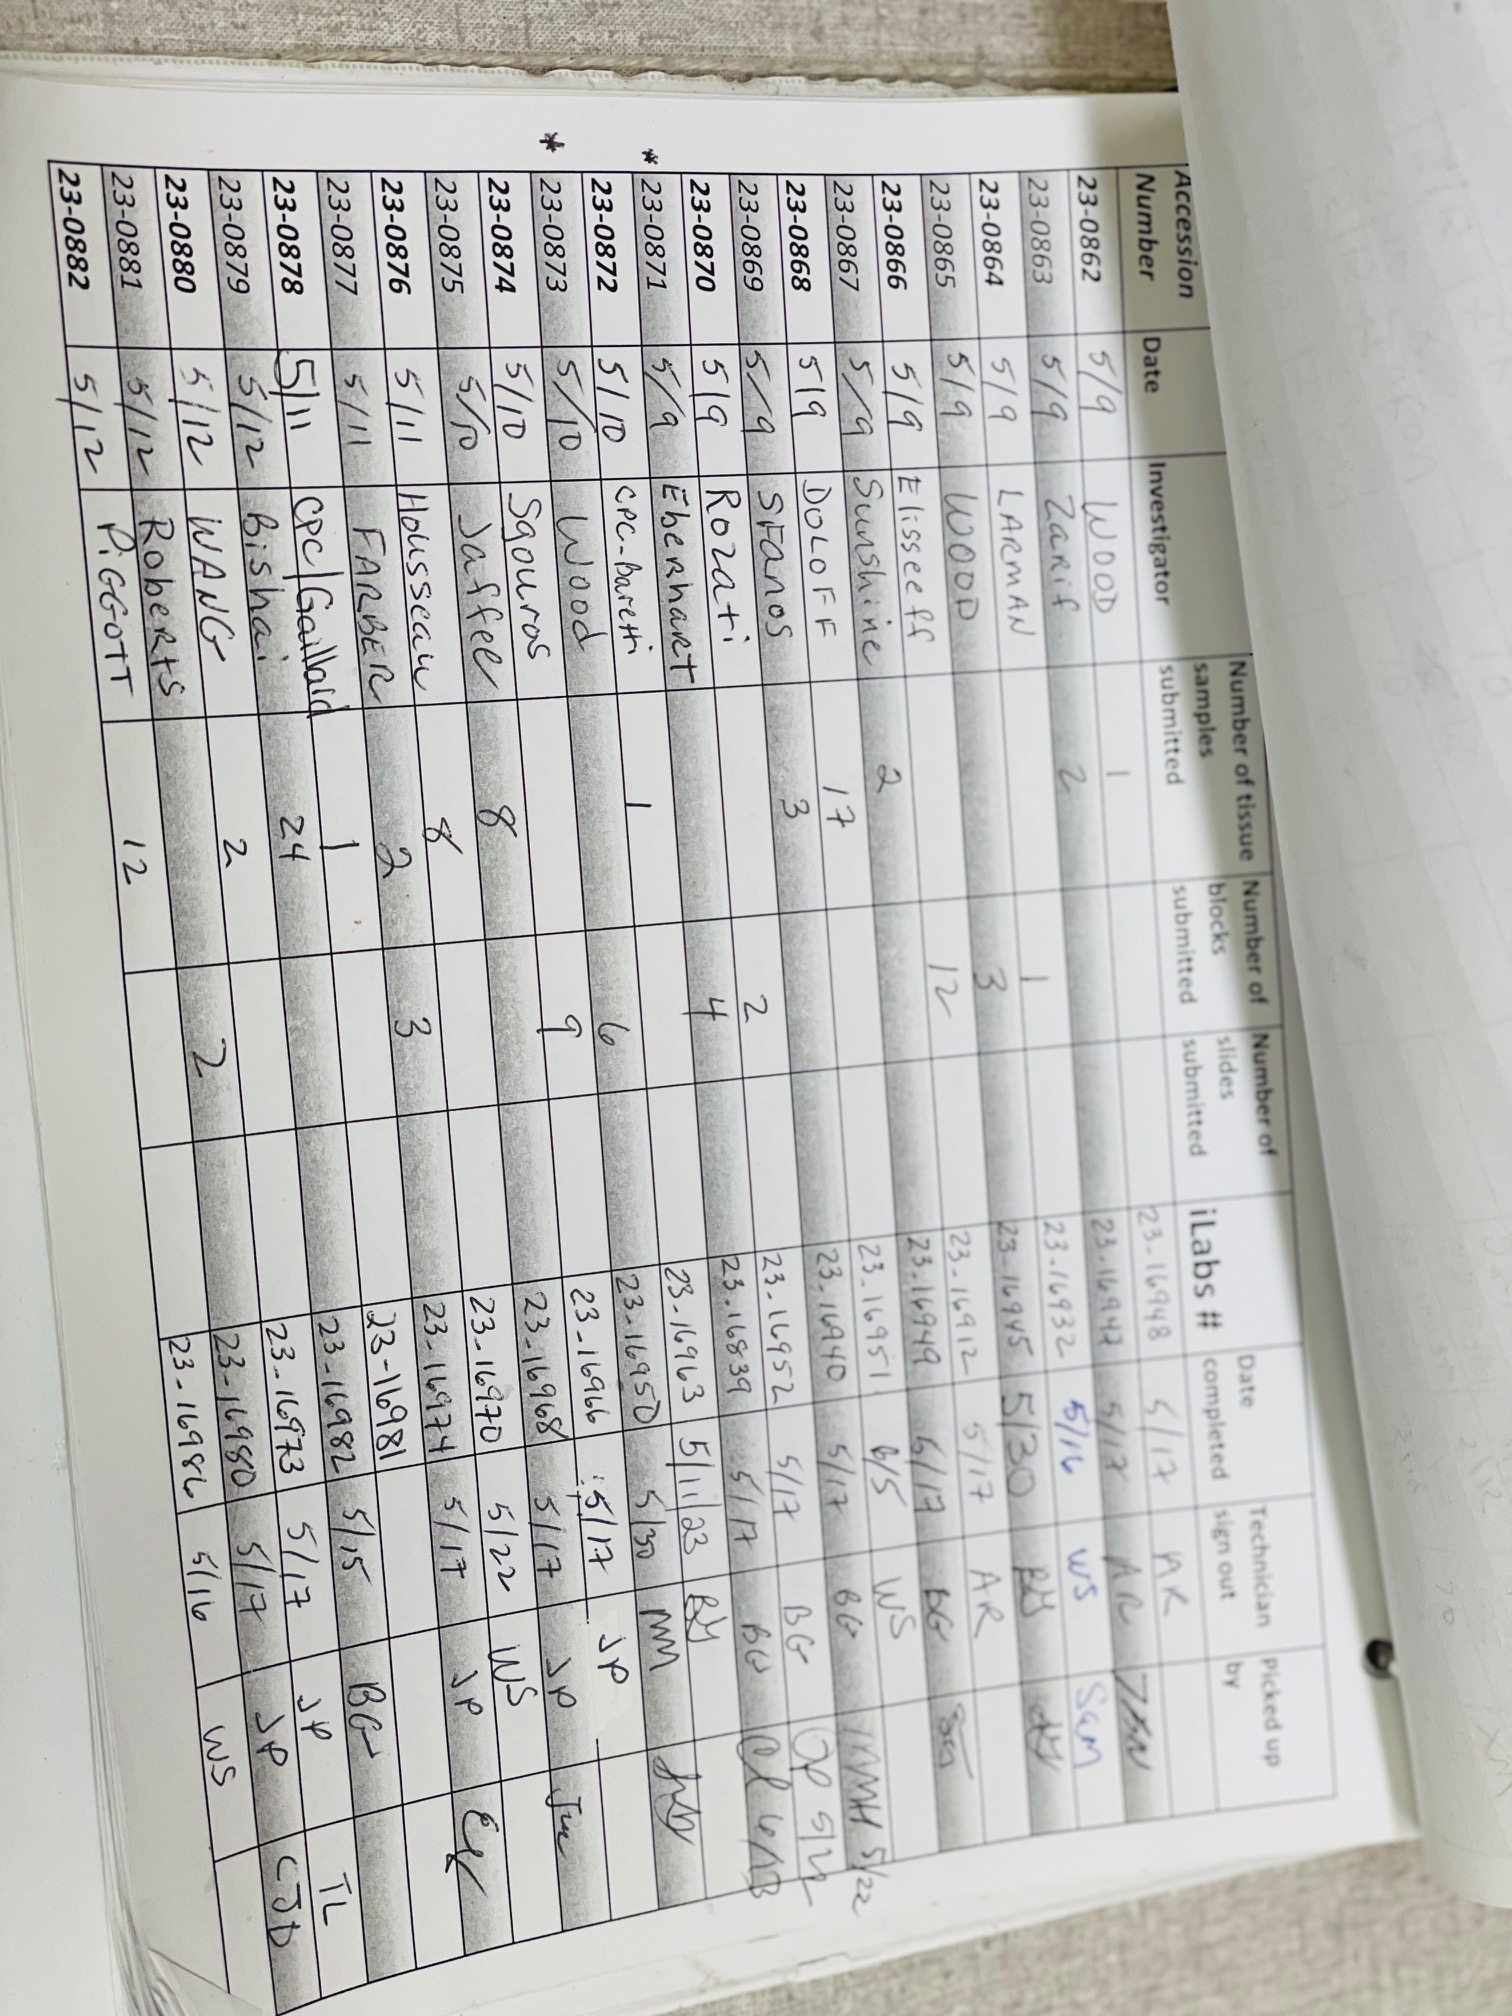 Accession Number Date Investigator Number of tissue samples submitted Number of blocks submitted Number of slides submitted iLabs # Date completed Technician sign out Picked up by
23-0862 5/9 WOOD 1 23-16948 5/17 AR
23-0863 5/9 Zarif 2 23-16947 5/17 AR
23-0864 5/9 LARMAN 1 23-16932 5/16 WS SGM
23-0865 5/9 WOOD 3 23-16945 5/30
23-0866 5/9 Elisseeff 12 23-16912 5/17 AR
23-0867 5/9 Sunshine 2 23-16949 5/17 BG
23-0868 5/9 DOLOFF 17 23-16951 6/5 WS
23-0869 5/9 Sfanos 3 23-16940 5/17 BG 5/22
23-0870 5/9 Rozati 2 23-16952 5/17 BG
* 23-0871 5/9 Eberhart 4 23-16839 5/17 BG
23-0872 5/10 CPC-Baretti 1 23-16963 5/11/23
* 23-0873 5/10 Wood 6 23-16950 5/30 MM
23-0874 5/10 Sgouros 9 23-16966 5/17 JP
23-0875 5/10 Jaffee 8 23-16968 5/17 JP
23-0876 5/11 Housseau 8 23-16970 5/22 WS
23-0877 5/11 FARBER 2 3 23-16974 5/17 JP
23-0878 5/11 CPC/Gaillard 1 23-16981
23-0879 5/12 Bishai 24 23-16982 5/15 BG
23-0880 5/12 WANG 2 23-16973 5/17 JP TL
23-0881 5/12 Roberts 2 23-16980 5/17 JP CJD
23-0882 5/12 PIGGOTT 12 23-16986 5/16 WS